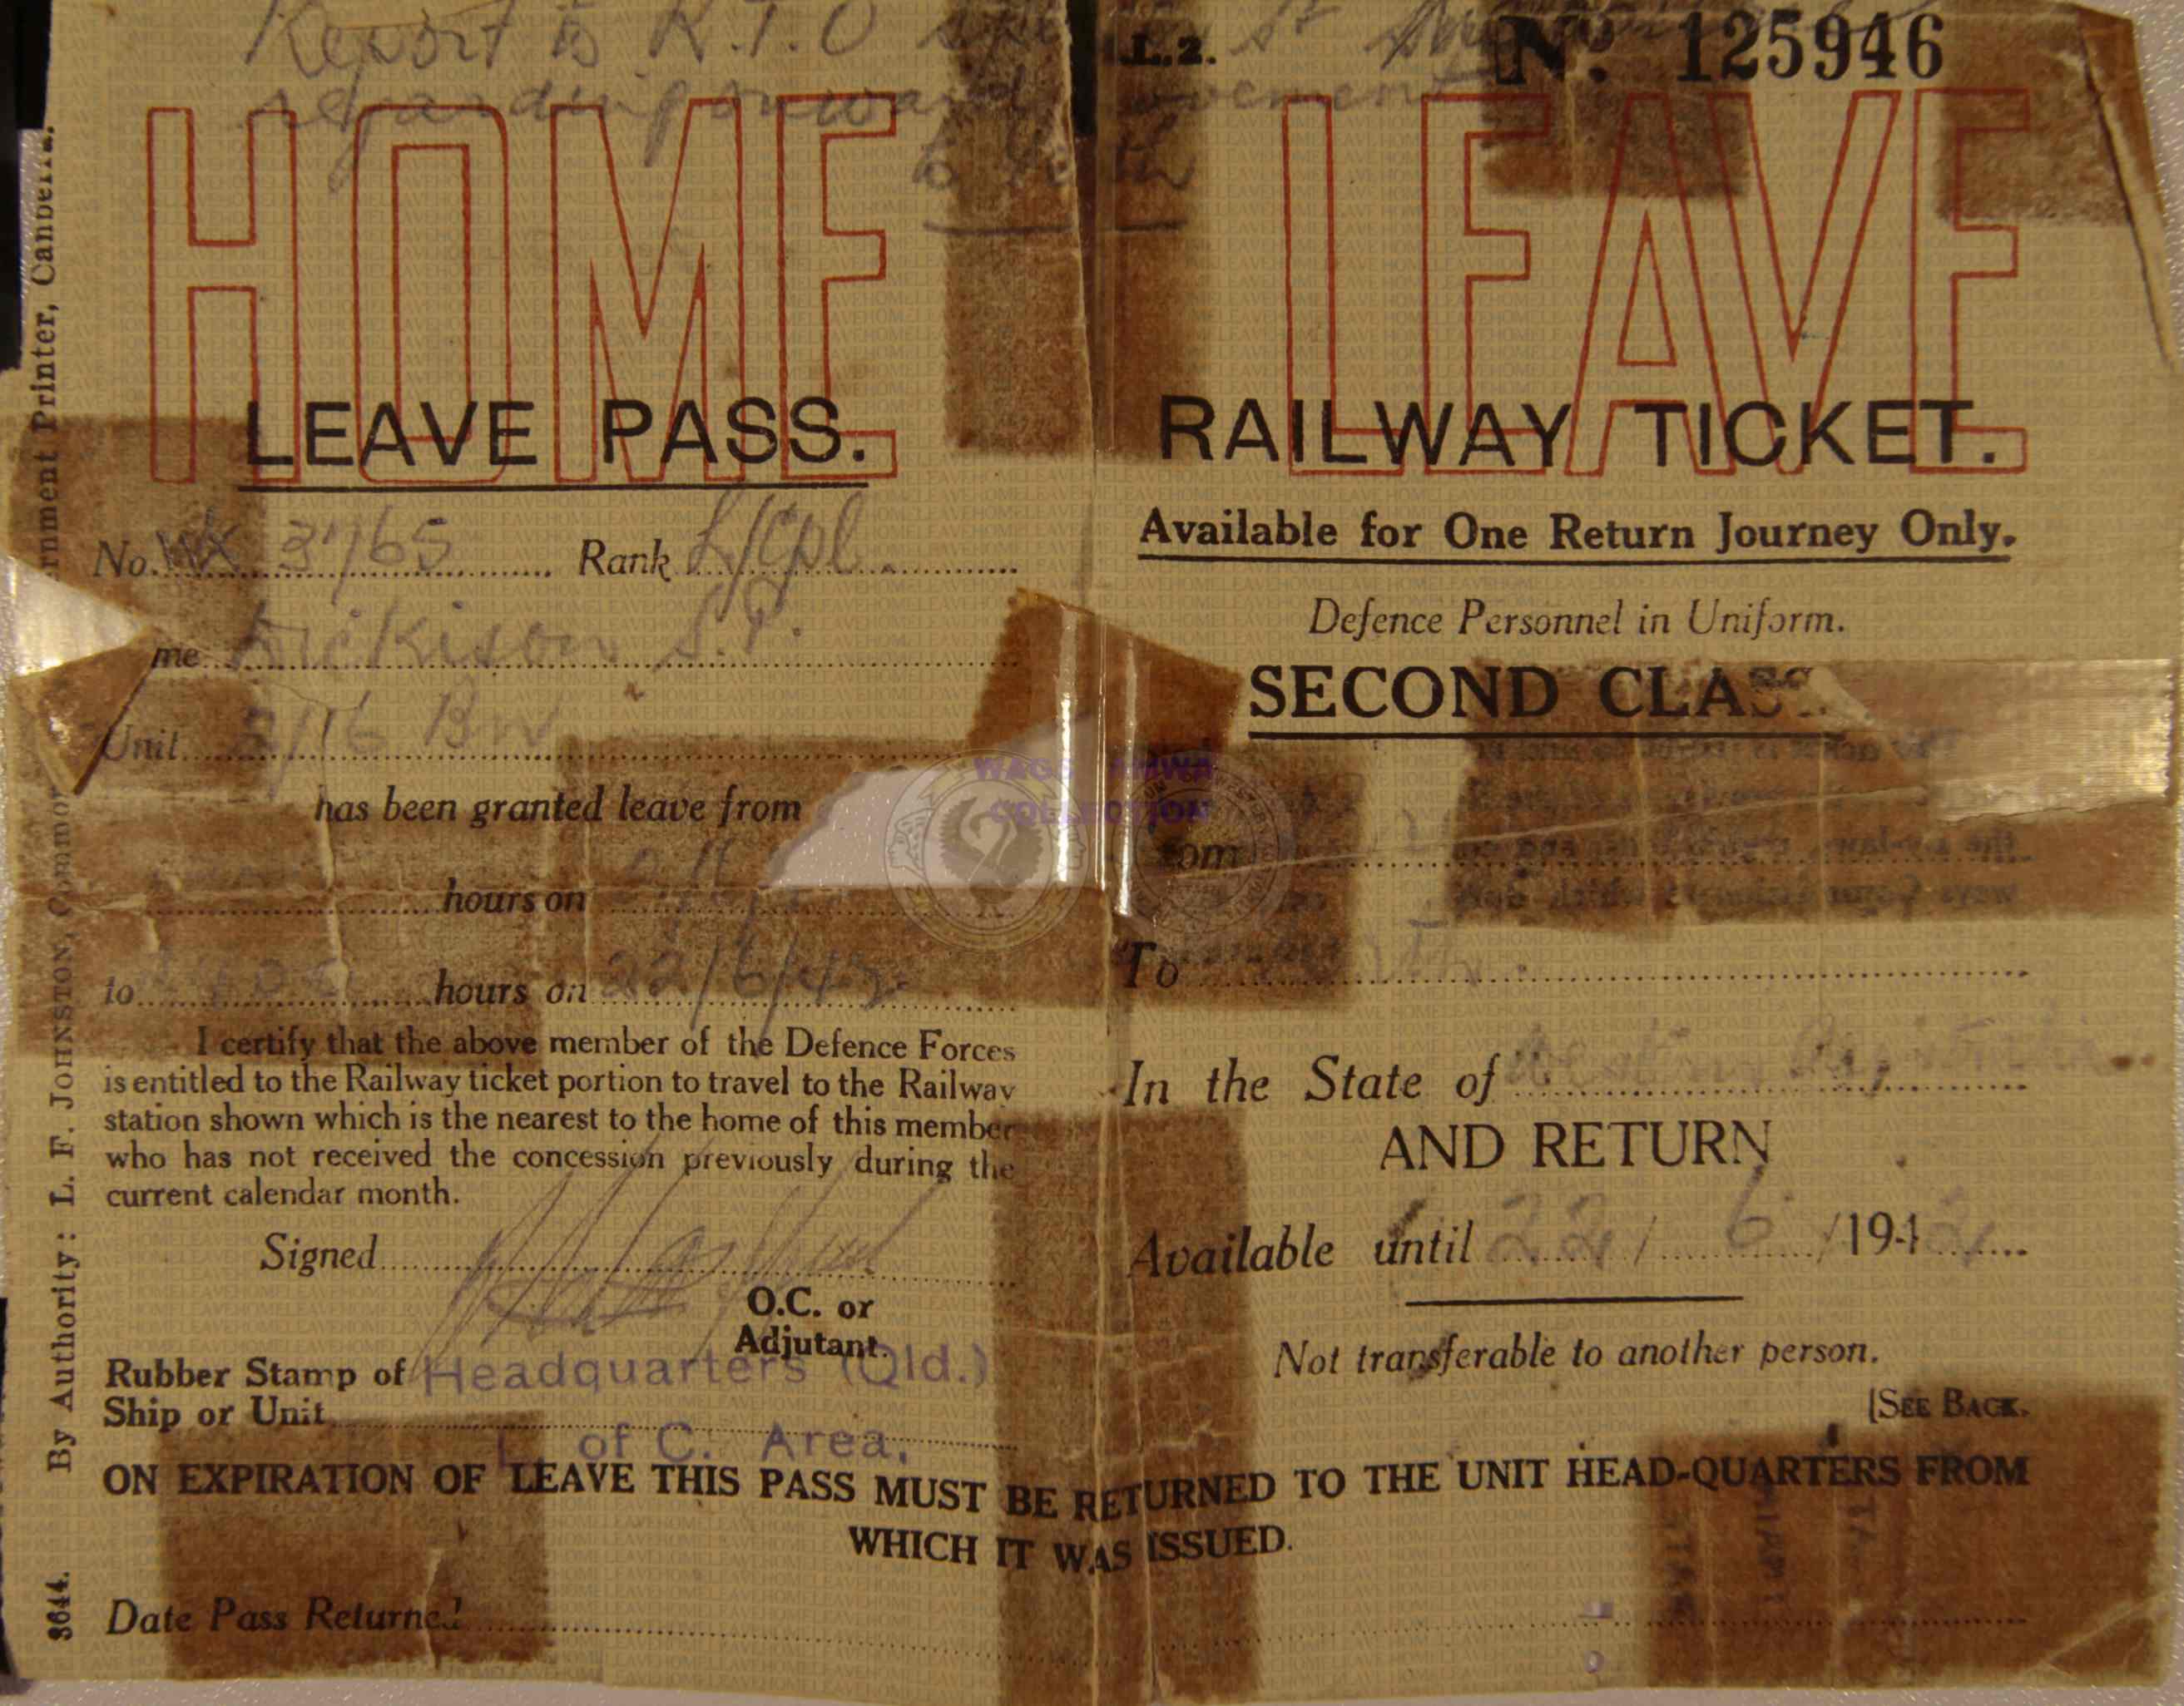 Report to R.T.O
regarding onward movement
to Perth
L.2.
No. 125946
HOME LEAVE
LEAVE PASS.
No. WX 3765 Rank L/Cpl.
me Dickison S.P.
Unit 2/16 Bn
has been granted leave from
hours on
to hours on 22/6/42.
I certify that the above member of the Defence Forces
is entitled to the Railway ticket portion to travel to the Railway
station shown which is the nearest to the home of this member
who has not received the concession previously during the
current calendar month.
Signed
O.C. or
Adjutant.
Rubber Stamp of Headquarters (Qld.)
Ship or Unit
L of C. Area.
RAILWAY TICKET.
Available for One Return Journey Only.
Defence Personnel in Uniform.
SECOND CLASS
WAGS AMWA
COLLECTION
from
To
In the State of Western Australia
AND RETURN
Available until 22/6/1942
Not transferable to another person.
[SEE BACK.
ON EXPIRATION OF LEAVE THIS PASS MUST BE RETURNED TO THE UNIT HEAD-QUARTERS FROM
WHICH IT WAS ISSUED.
Date Pass Returned
3644. By Authority: L. F. JOHNSTON, Commonw rnment Printer, Canberra.